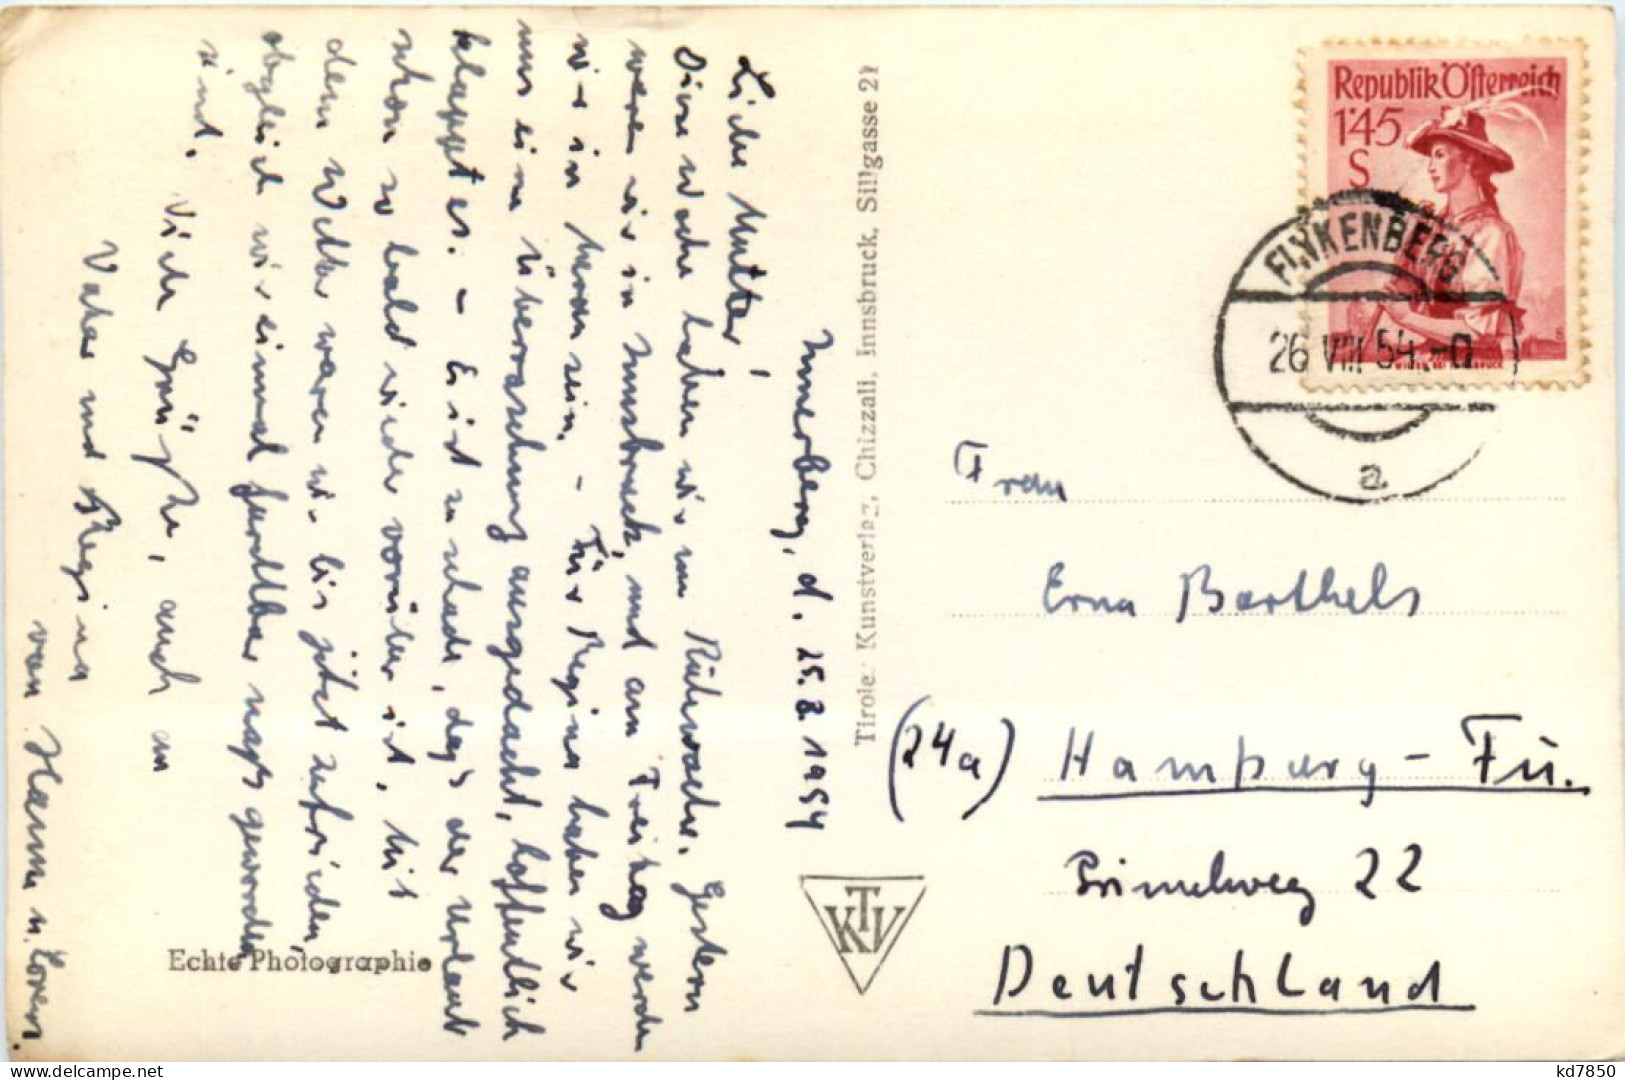 Innerberg, d. 25.8.1954
Liebe Mutter!
Diese Woche haben wir nun Ruhewoche. Gestern
waren wir in Innsbruck, und am Freitag werden
wir in Meran sein. – Für Regina haben wir
uns eine Überraschung ausgedacht, hoffentlich
klappt es. – Es ist zu schade, daß der Urlaub
schon so bald wieder vorüber ist. Mit
dem Wetter waren wir bis jetzt zufrieden,
obgleich wir einmal furchtbar naß geworden
sind.
Viele Grüße, auch an
Vater und Regina
von Hanna u. Lorenz.
Echte Photographie
Tiroler Kunstverlag, Chizzali, Innsbruck, Sillgasse 21
KTV
Republik Österreich
1'45
S
FINKENBERG
26 VIII 54
a
Frau
Erna Barthels
(24a) Hamburg – Fu.
Primelweg 22
Deutschland
delcampe.net
kd7850